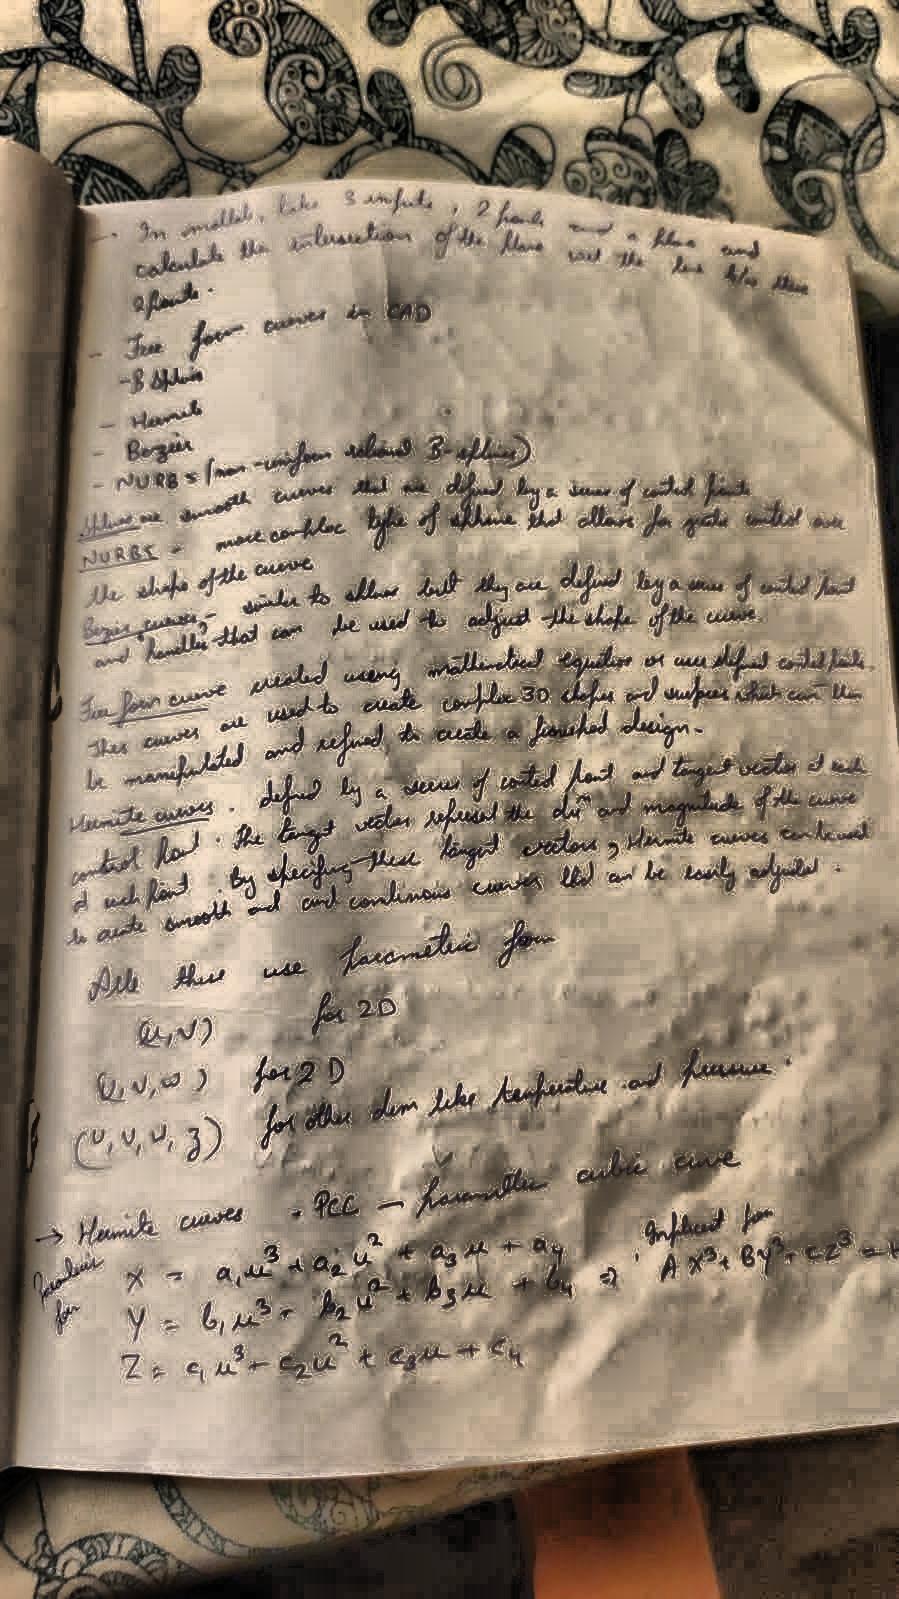 → In matlab, take 3 inputs, 2 points and a plane and
calculate the intersection of the plane wrt the line b/w these
2 points.
- Free form curves in CAD
- B Splines
- Hermite
- Bezier
- NURBS (non-uniform rational B-splines)
Splines are smooth curves that are defined by a series of control points
NURBS - more complex type of spline that allows for greater control over
the shape of the curve
Bezier curves - similar to splines but they are defined by a series of control point
and "handles" that can be used to adjust the shape of the curve.
Free form curve created using mathematical equations or user defined control points.
These curves are used to create complex 3D shapes and surfaces which can then
be manipulated and refined to create a finished design.
Hermite curves. defined by a series of control point and tangent vector at each
control point. The tangent vector represent the dirⁿ and magnitude of the curve
at each point. By specifying these tangent vectors, Hermite curves can be used
to create smooth and continuous curves that can be easily adjusted.
All these use parametric form
(u,v) for 2D
(u,v,w) for 2D
(u,v,w,z) for other dim like temperature and pressure.
→ Hermite curves • PCC - parametric cubic curve
Parametric form
Implicit form
X = a₁u³ + a₂u² + a₃u + a₄ ⇒ AX³ + By³ + CZ³ =
Y = b₁u³ + b₂u² + b₃u + b₄
Z = c₁u³ + c₂u² + c₃u + c₄